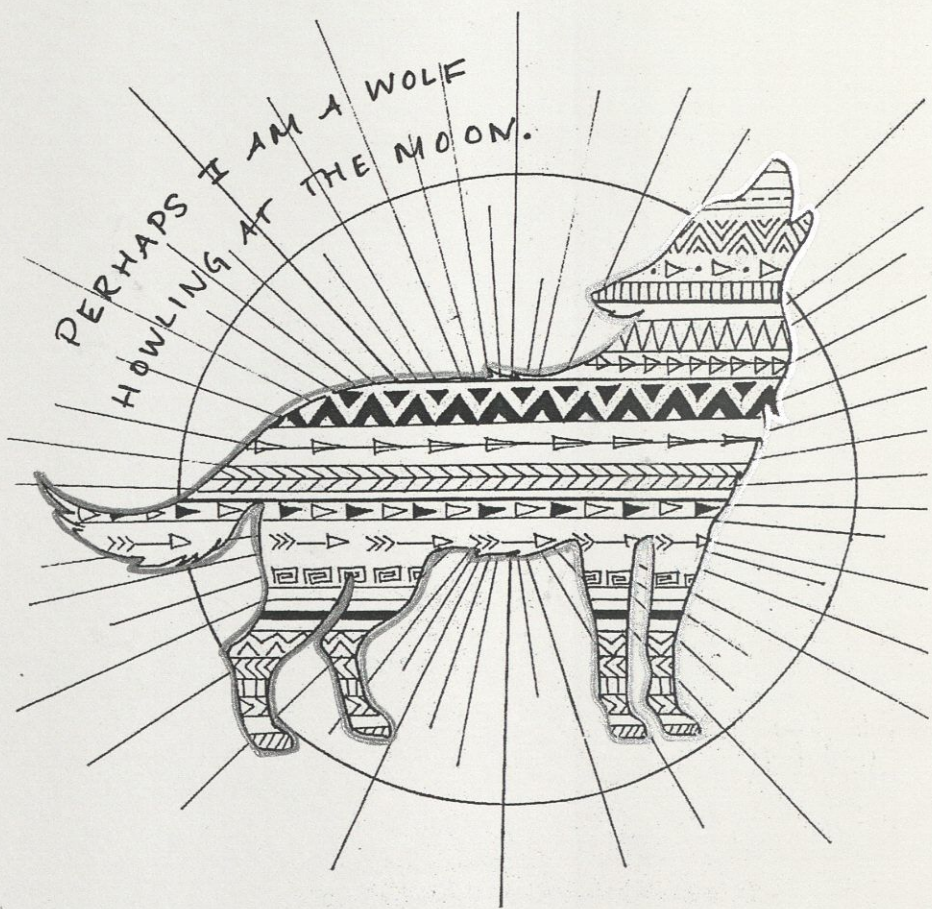 PERHAPS I AM A WOLF
HOWLING AT THE MOON.